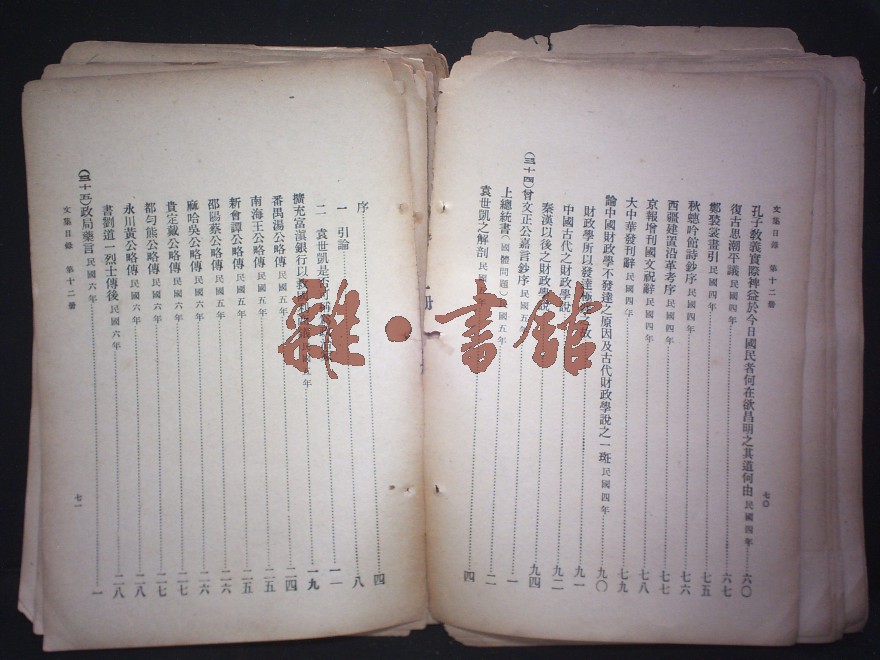 文集目錄 第十二册
七〇
孔子敎義實際裨益於今日國民者何在欲昌明之其道何由民國四年 六〇
復古思潮平議民國四年 六七
鄭褧裳畫引民國四年 七五
秋蟪吟館詩鈔序民國四年 七六
西疆建置沿革考序民國四年 七七
京報增刊國文祝辭民國四年 七八
大中華發刊辭民國四年 七九
論中國財政學不發達之原因及古代財政學說之一斑民國四年 九〇
財政學所以發達 九一
中國古代之財政學說 九二
秦漢以後之財政學說 九四
(三十四)曾文正公嘉言鈔序民國五年 一
上總統書(國體問題)民國五年 二
袁世凱之解剖民國 年 四
序 四
一 引論 八
二 袁世凱是否 一一
擴充富滇銀行以救國利 年 一九
番禺湯公略傳民國五年 二四
南海王公略傳民國五年 二五
新會譚公略傳民國五年 二五
邵陽蔡公略傳民國五年 二六
麻哈吳公略傳民國六年 二六
貴定戴公略傳民國六年 二七
都勻熊公略傳民國六年 二七
永川黃公略傳民國六年 二八
書劉道一烈士傳後民國六年 二八
(三十五)政局藥言民國六年 一
文集目錄 第十二册
七一
雜·書館